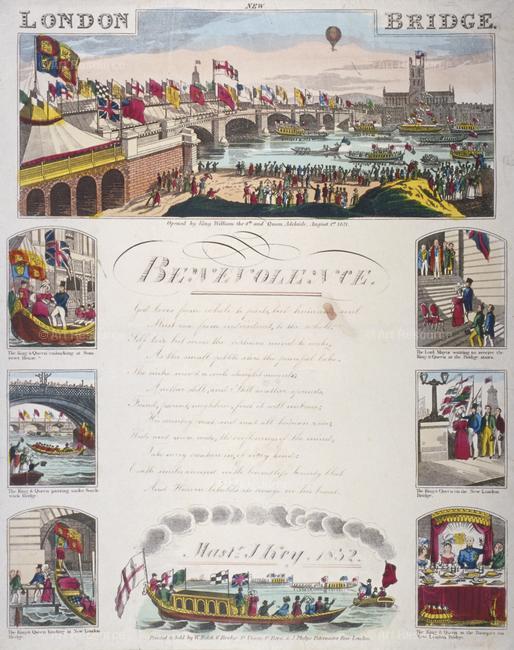 NEW
LONDON BRIDGE.
Opened by King William the 4th and Queen Adelaide, August 1st 1831.
BENEVOLENCE.
God loves from whole to parts, but human soul
Must rise from individual, to the whole.
Self love but serves the virtuous mind to wake,
As the small pebble stirs the peaceful lake;
The centre mov'd a circle straight succeeds,
Another still, and still another spreads,
Friend, parent, neighbour, first it will embrace;
His country next, and next all human race;
Wide and more wide, the o'erflowings of the mind,
Take every creature in, of every kind;
Earth smiles around, with boundless bounty blest
And Heaven beholds its image in his breast.
The King & Queen embarking at Somerset House.
The King & Queen passing under Southwark Bridge.
The King & Queen landing at New London Bridge.
The Lord Mayor waiting to receive the King & Queen at the Bridge stairs.
The King & Queen on the New London Bridge.
The King & Queen at the Banquet on New London Bridge.
1832.
Printed & Sold by London.